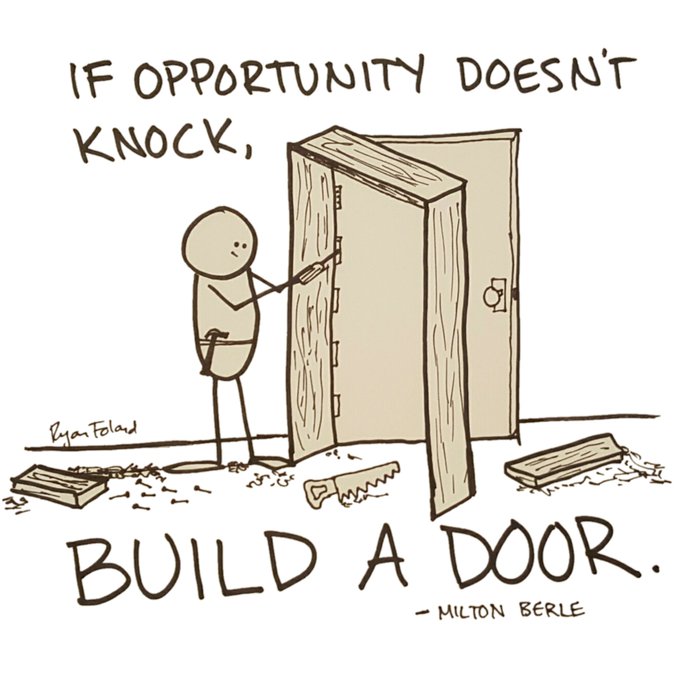 IF OPPORTUNITY DOESN'T
KNOCK,
Ryan Foland
BUILD A DOOR.
- MILTON BERLE